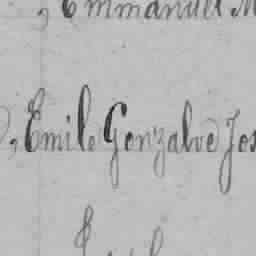 , Emmanuel M
, Emile Gonzalve Jos